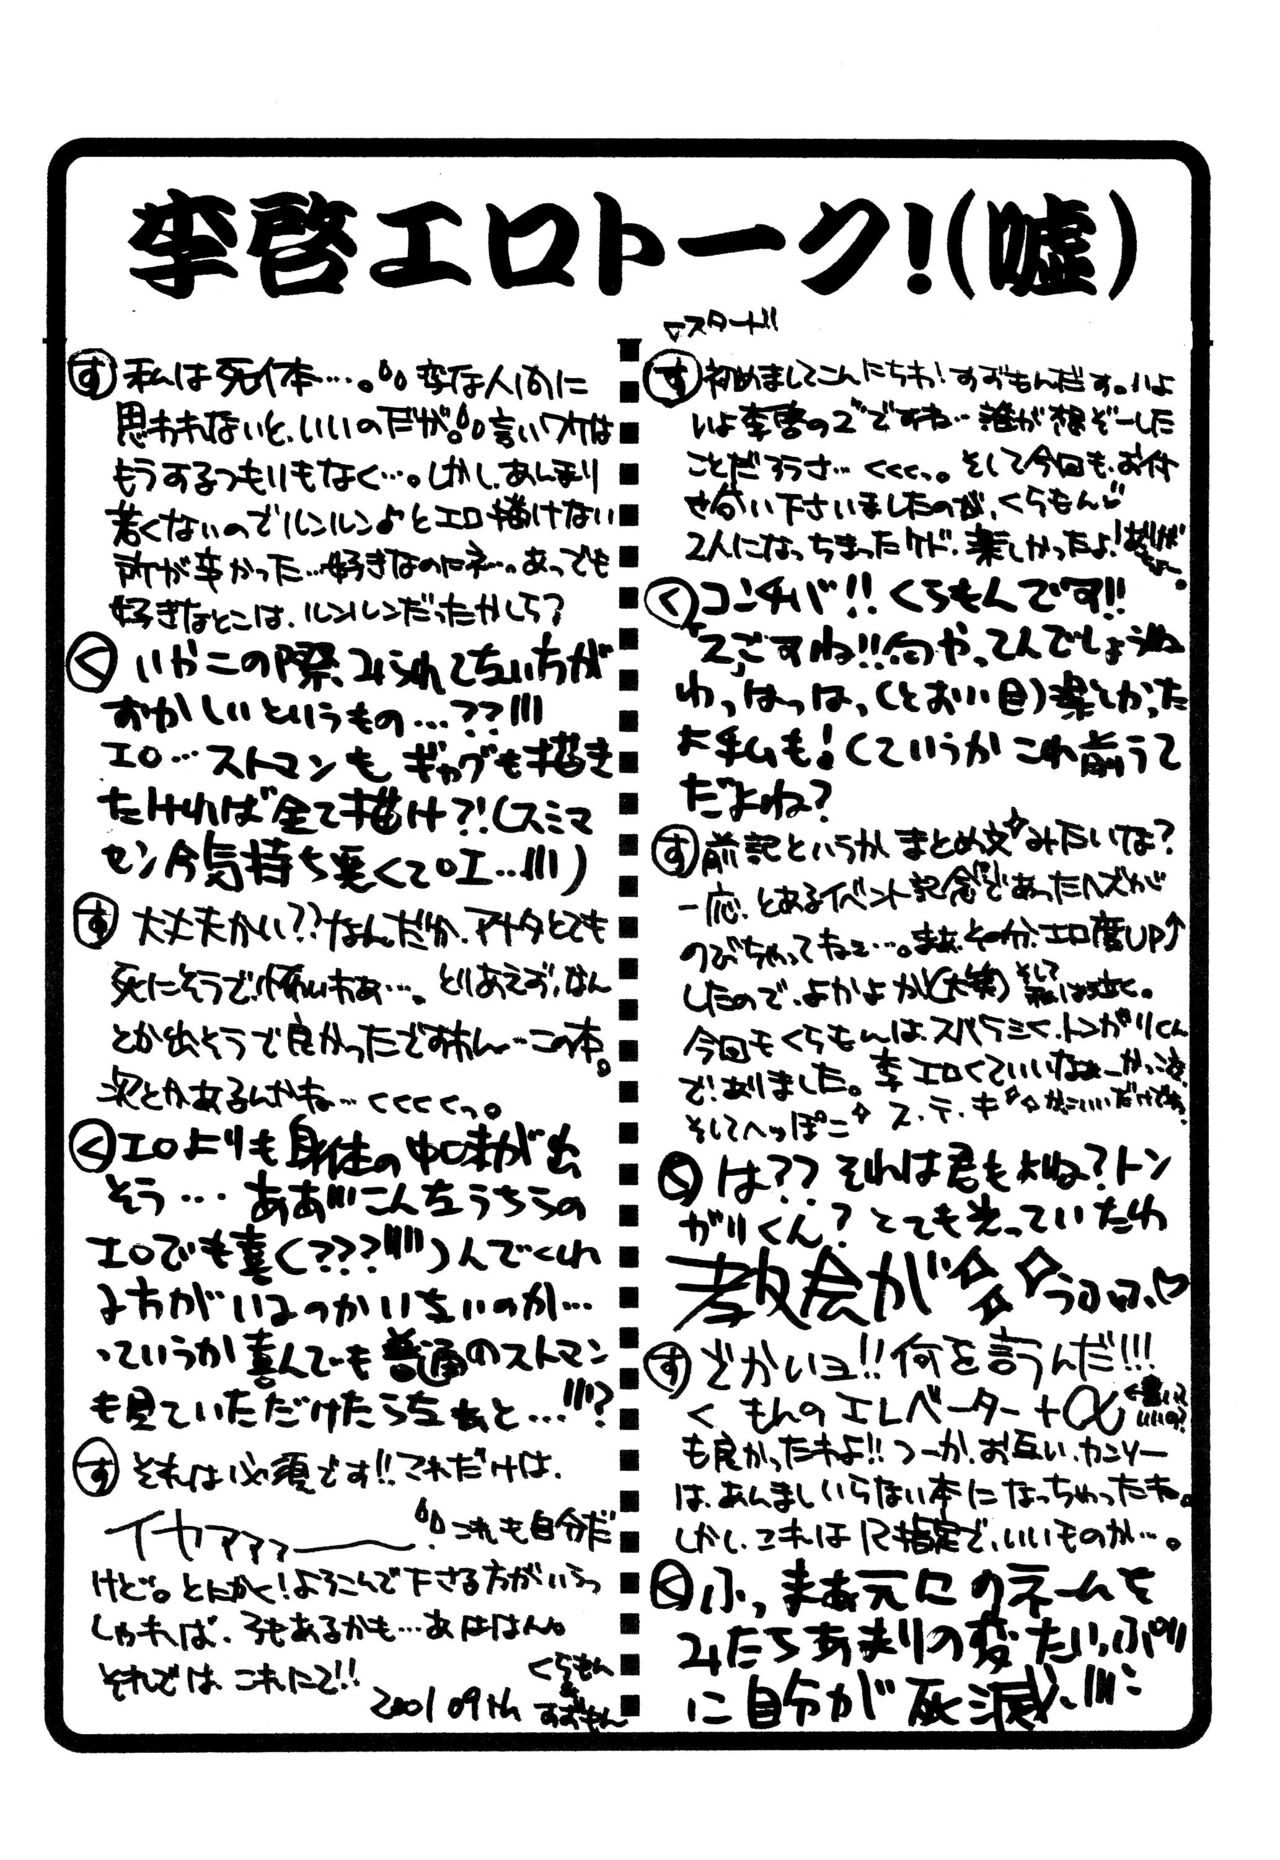 李啓エロトーク!(嘘)
▽スタート!!
す 初めましてこんにちわ!すずもんだす。いよ
いよ李啓の2ですね…誰が想ぞーした
ことだろうさ…くくくっ。そして今回も、お付
せ合い下さいましたのが、くらもん♡
2人になっちまったケド、楽しかったよ!ありがとー。
く コンチバ!!くらもんです!!
「2」ですね!!何やってんでしょうね
わっはっはっ(とおい目)楽しかった
よ私も!(ていうかこれ前うて
だよね?
す 前記というかまとめ文みたいな?
一応、とあるイベント記念であったハズが
のびちゃってねェ…。まあ、その分、エロ度UP↑
したので、よかよか(大笑)そして私は泣く。
今回もくらもんは、スバラシく、トンガリくん
でありました。李エロくていいなぁーかっこよ
そしてへっぽこ ス、テ、キ かっこいいだけでは?
く は??それは君もよね?トン
がりくん?とても光っていたわ
教会が うふふ、♡
す でかいヨ!!何を言うんだ!!!
く もんのエレベーター+α ←書いていいの?
も良かったわよ!!つーか、お互い、カンソー
は、あんましいらない本になっちゃったね。
しかし、これはR指定で、いいものか…。
く ふっ まぁ元にのネームを
みたらあまりの変たいっぷり
に自分が死滅、!!!
す 私は死体…。変な人間に
思われないと、いいのだが。言いワケは
もうするつもりもなく…。しかし、あんまり
若くないのでルンルン♪とエロ描けない
所が辛かった…好きなのにネ…。あっでも
好きなとこは、ルンルンだったかしら?
く いやこの際、みられてない方が
おかしいというもの…??!!!
エロ…ストマンも ギャグも描き
たければ全て描け?!(スミマ
セン今気持ち悪くてoエ…!!!)
す 大丈夫かい??なんだか、アナタとても
死にそうで、怖いわぁ…。とりあえず、なん
とか出そうで良かったですわん…この本。
次とかあるんかね…くくくくっ。
く エロよりも身体の中味が出
そう… ああ!!!こんなうちらの
エロでも喜(???!!!)んでくれ
る方がいるのかいないのか…
っていうか喜んでも普通のストマン
も見ていただけたらなぁと…!!!?
す それは必須です!!これだけは、
イヤァァァ〜〜 これも自分だ
けど。とにかく!よろこんで下さる方がいらっ
しゃれば、3もあるかも…あははん。
それでは これにて!!
くらもん
&
すずもん
2001 09th